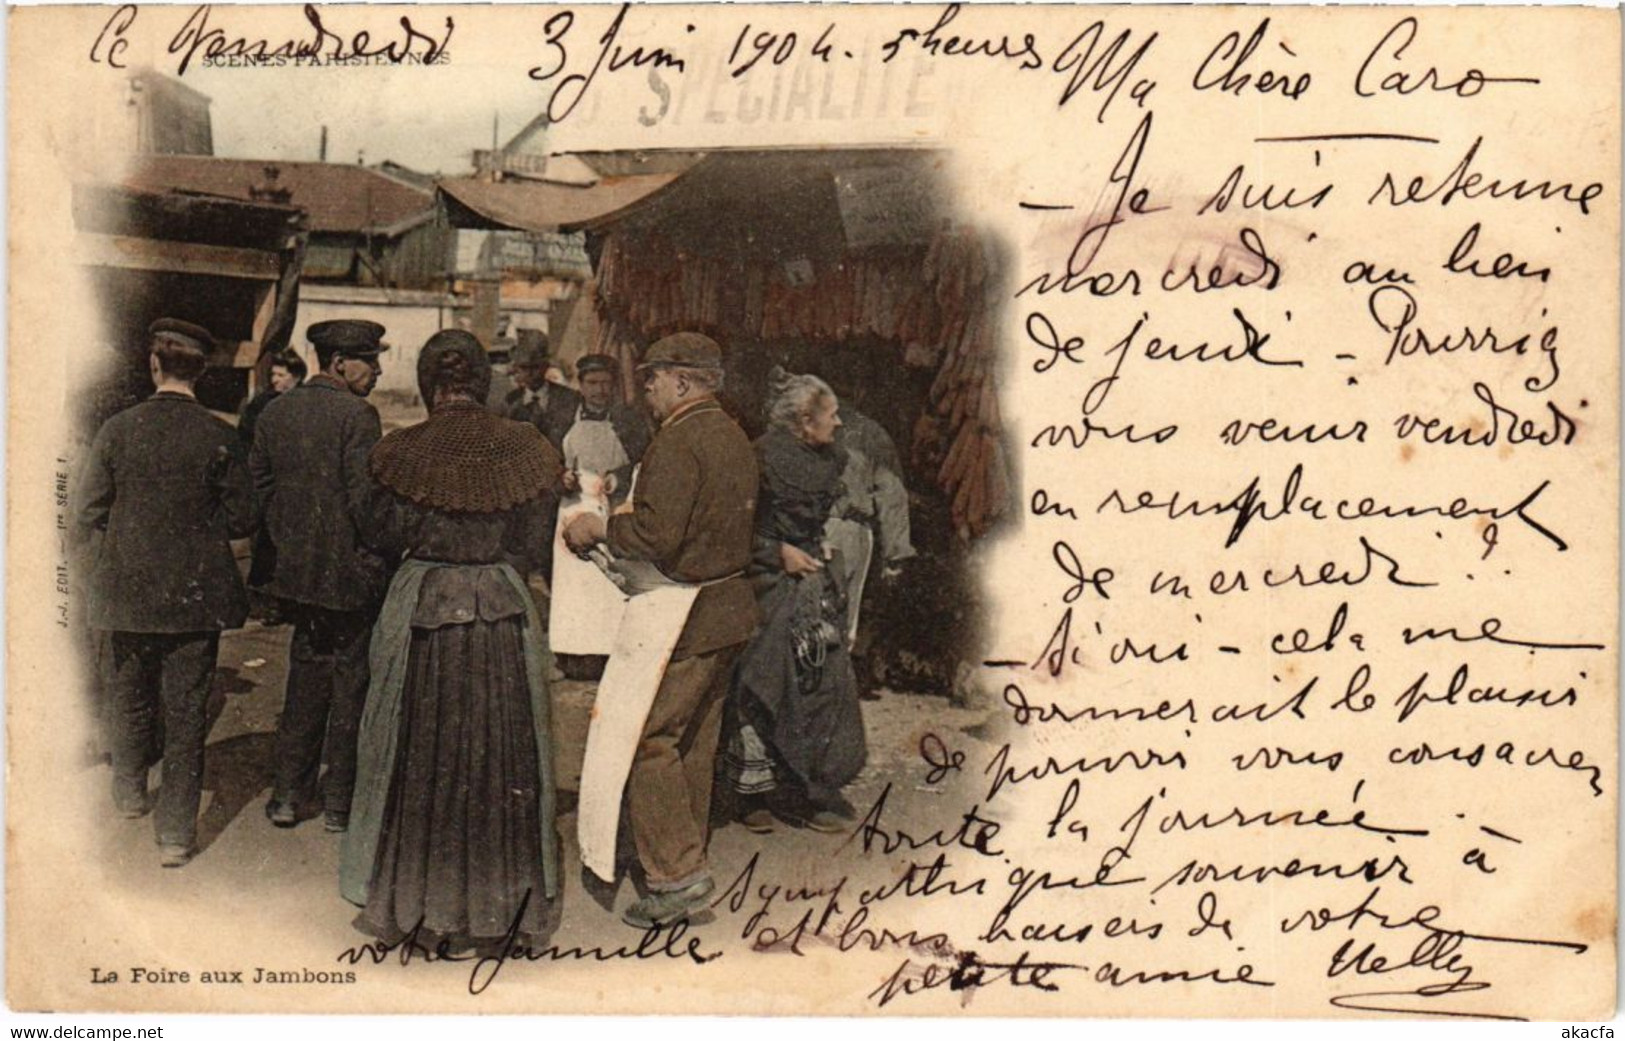 Ce Vendredi 3 Juin 1904. 5 heures
SCÈNES PARISIENNES
SPÉCIALITÉ
Ma Chère Caro
- Je suis retenue
mercredi au lieu
de jeudi - Pourriez
vous venir vendredi
en remplacement
de mercredi ??
- Si oui - cela me
donnerait le plaisir
de pouvoir vous consacrer
toute la journée.
Sympathique souvenir à
votre famille et bons baisers de votre
petite amie Nelly
J.-J. EDIT. — 1re SÉRIE 1
La Foire aux Jambons
akacfa-www.delcampe.net
akacfa